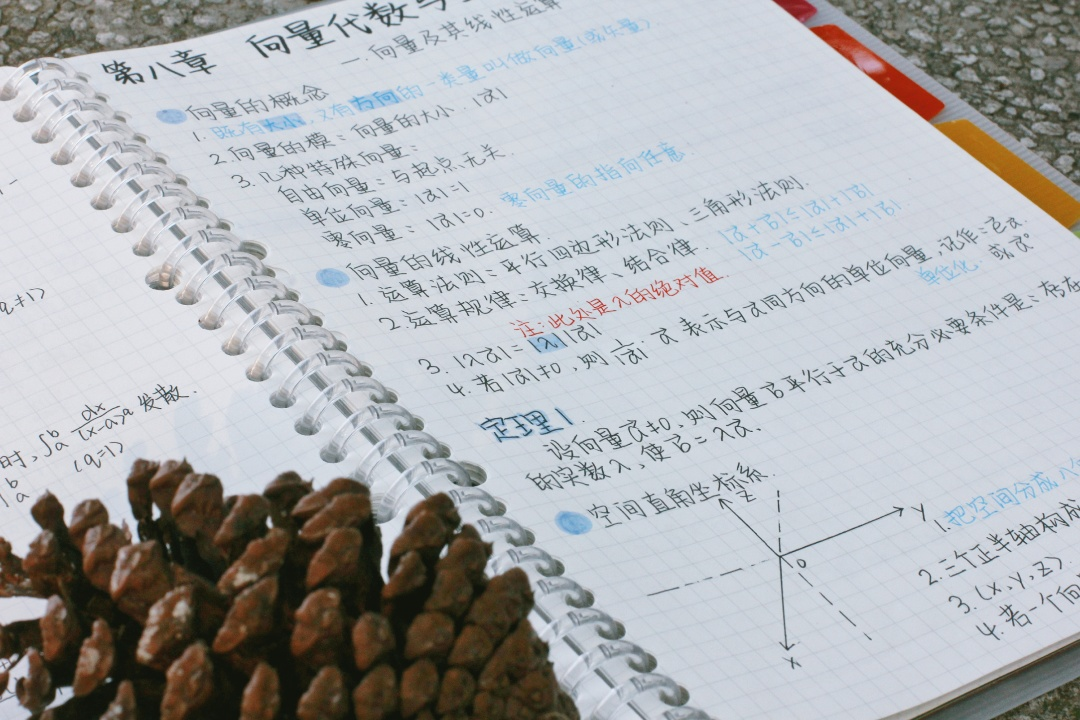 第八章 向量代数与
一.向量及其线性运算
向量的概念
1. 既有大小,又有方向的一类量叫做向量(或矢量)
2.向量的模:向量的大小.|a⃗|
3.几种特殊向量:
自由向量:与起点无关.
单位向量:|a⃗|=1
零向量:|a⃗|=0. 零向量的指向任意
向量的线性运算.
1. 运算法则:平行四边形法则、三角形法则.
2.运算规律:交换律、结合律. |a⃗+b⃗|≤|a⃗|+|b⃗|
|a⃗-b⃗|≤|a⃗|+|b⃗|
注:此处是λ的绝对值.
3. |λa⃗|=|λ||a⃗|
4. 若|a⃗|≠0,则 1/|a⃗|·a⃗ 表示与a⃗同方向的单位向量,记作:e⃗a 或a⃗°
单位化
定理1.
设向量a⃗≠0,则向量b⃗平行于a⃗的充分必要条件是:存在
的实数λ,使b⃗=λa⃗.
空间直角坐标系.
Z
Y
o
X
1.把空间分成八个
2.三个正半轴构成
3. (X,Y,Z)
4. 若一个向
q≠1)
时,∫ᵇₐ dx/(x-a)^q 发散.
(q=1)